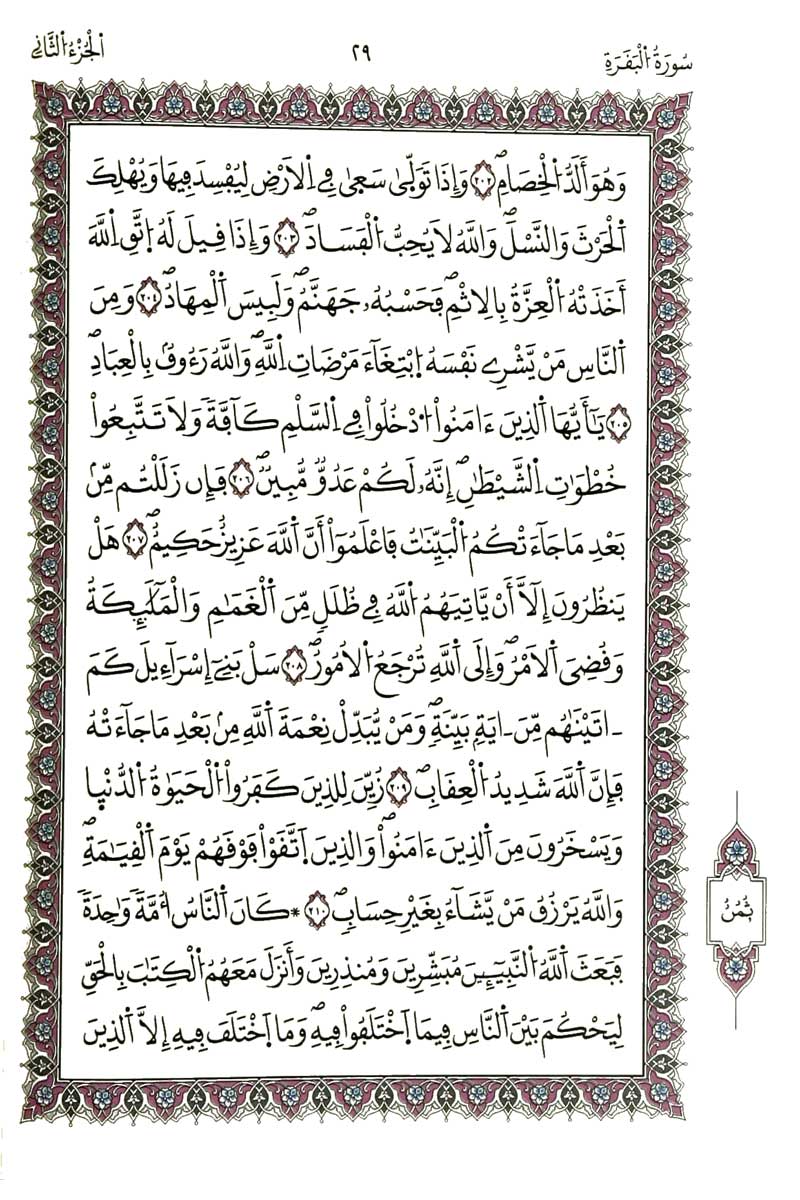 سُورَةُ الْبَقَرَةِ
٢٩
الْجُزْءُ الثَّانِي
وَهُوَ أَلَدُّ اُلْخِصَامِۖ ٢٠٢ وَإِذَا تَوَلّ۪يٰ سَع۪يٰ فِے اِلَارْضِ لِيُفْسِدَ فِيهَا وَيُهْلِكَ
اَلْحَرْثَ وَالنَّسْلَۖ وَاللَّهُ لَا يُحِبُّ اُلْفَسَادَۖ ٢٠٣ وَإِذَا قِيلَ لَهُ اُتَّقِ اِللَّهَ
أَخَذَتْهُ اُلْعِزَّةُ بِالِاثْمِۖ فَحَسْبُهُۥ جَهَنَّمُۖ وَلَبِيسَ اَلْمِهَادُۖ ٢٠٤ وَمِنَ
اَلنَّاسِ مَنْ يَّشْرِے نَفْسَهُ اُبْتِغَآءَ مَرْضَاتِ اِللَّهِۖ وَاللَّهُ رَءُوفُۢ بِالْعِبَادِۖ
٢٠٥ يَٰٓأَيُّهَا اَلذِينَ ءَامَنُواْ اُ۟دْخُلُواْ فِے اِلسَّلْمِ كَآفَّةٗ وَلَا تَتَّبِعُواْ
خُطْوَٰتِ اِلشَّيْطَٰنِۖ إِنَّهُۥ لَكُمْ عَدُوّٞ مُّبِينٞۖ ٢٠٦ فَإِن زَلَلْتُم مِّنۢ
بَعْدِ مَا جَآءَتْكُمُ اُلْبَيِّنَٰتُ فَاعْلَمُوٓاْ أَنَّ اَللَّهَ عَزِيزٌ حَكِيمٌۖ ٢٠٧ هَلْ
يَنظُرُونَ إِلَّآ أَنْ يَّاتِيَهُمُ اُللَّهُ فِے ظُلَلٖ مِّنَ اَلْغَمَٰمِ وَالْمَلَٰٓئِكَةُ
وَقُضِيَ اَلَامْرُۖ وَإِلَي اَللَّهِ تُرْجَعُ اُلُامُورُۖ ٢٠٨ سَلْ بَنِےٓ إِسْرَآءِيلَ كَمَ
اٰتَيْنَٰهُم مِّنَ اٰيَةِۢ بَيِّنَةٖۖ وَمَنْ يُّبَدِّلْ نِعْمَةَ اَللَّهِ مِنۢ بَعْدِ مَا جَآءَتْهُ
فَإِنَّ اَللَّهَ شَدِيدُ اُلْعِقَابِۖ ٢٠٩ زُيِّنَ لِلذِينَ كَفَرُواْ اُلْحَيَوٰةُ اُلدُّنْي۪ا
وَيَسْخَرُونَ مِنَ اَلذِينَ ءَامَنُواْۖ وَالذِينَ اَتَّقَوْاْ فَوْقَهُمْ يَوْمَ اَلْقِيَٰمَةِۖ
وَاللَّهُ يَرْزُقُ مَنْ يَّشَآءُ بِغَيْرِ حِسَابٖۖ ٢١٠ * كَانَ اَلنَّاسُ أُمَّةٗ وَٰحِدَةٗ
فَبَعَثَ اَللَّهُ اُلنَّبِيٓـِٕينَ مُبَشِّرِينَ وَمُنذِرِينَ وَأَنزَلَ مَعَهُمُ اُلْكِتَٰبَ بِالْحَقِّ
لِيَحْكُمَ بَيْنَ اَلنَّاسِ فِيمَا اَخْتَلَفُواْ فِيهِۖ وَمَا اَخْتَلَفَ فِيهِ إِلَّا اَلذِينَ
ثُمُنُ